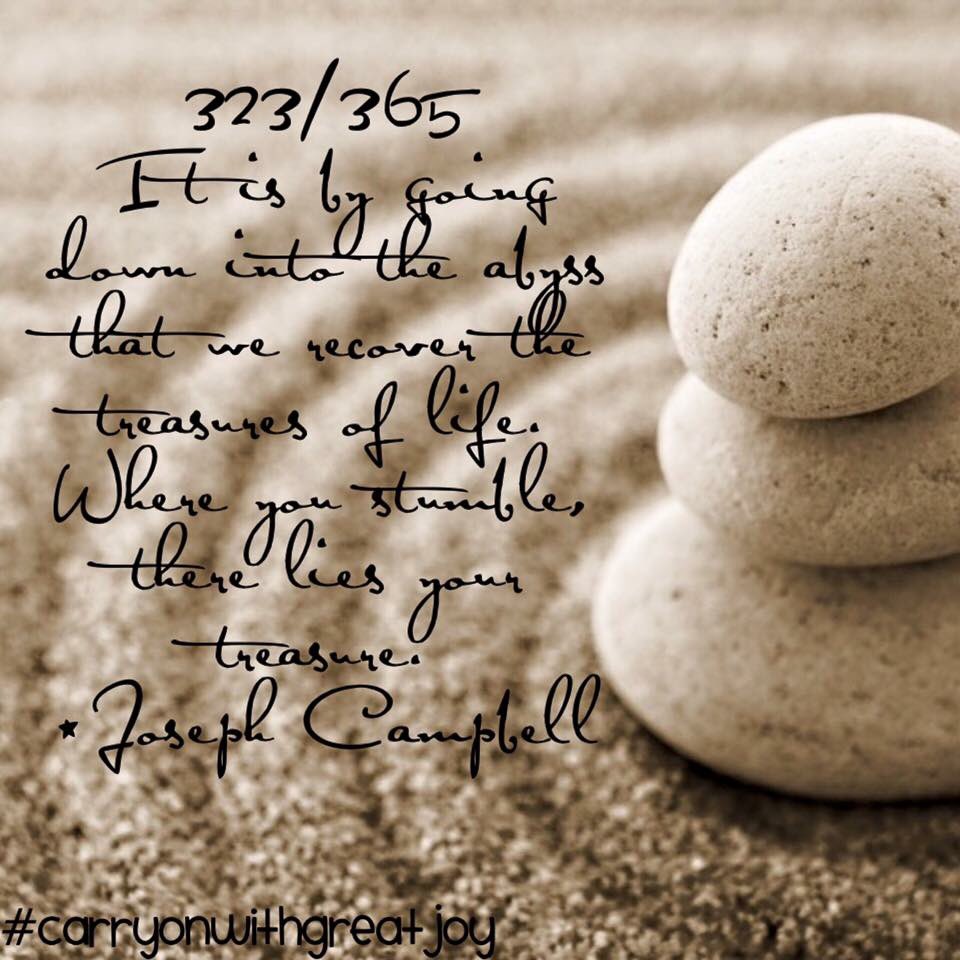 323/365
It is by going
down into the abyss
that we recover the
treasures of life.
Where you stumble,
there lies your
treasure.
★ Joseph Campbell
#carryonwithgreatjoy